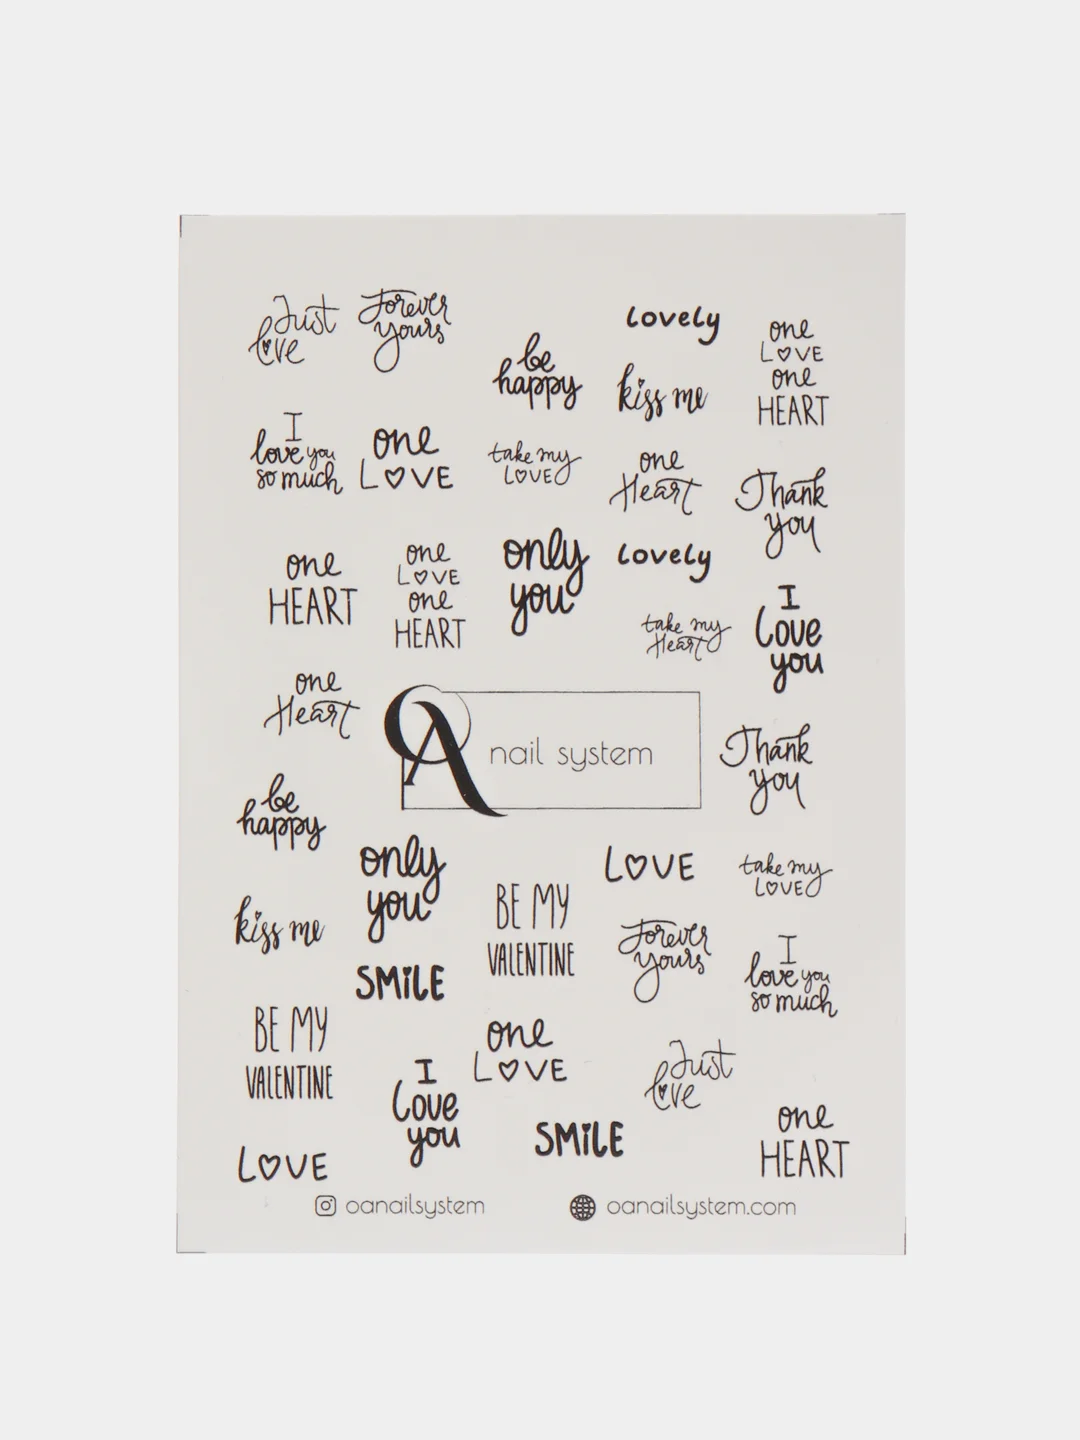 Just
love
Forever
yours
be
happy
lovely
kiss me
one
LOVE
one
HEART
I
love you
so much
one
LOVE
take my
LOVE
one
Heart
Thank
you
one
HEART
one
LOVE
one
HEART
only
you
lovely
take my
Heart
I
Love
you
one
Heart
OA nail system
Thank
you
be
happy
only
you
LOVE
take my
LOVE
kiss me
BE MY
VALENTINE
Forever
yours
I
love you
so much
SMiLE
BE MY
VALENTINE
one
LOVE
Just
love
I
Love
you
SMiLE
one
HEART
LOVE
oanailsystem
oanailsystem.com